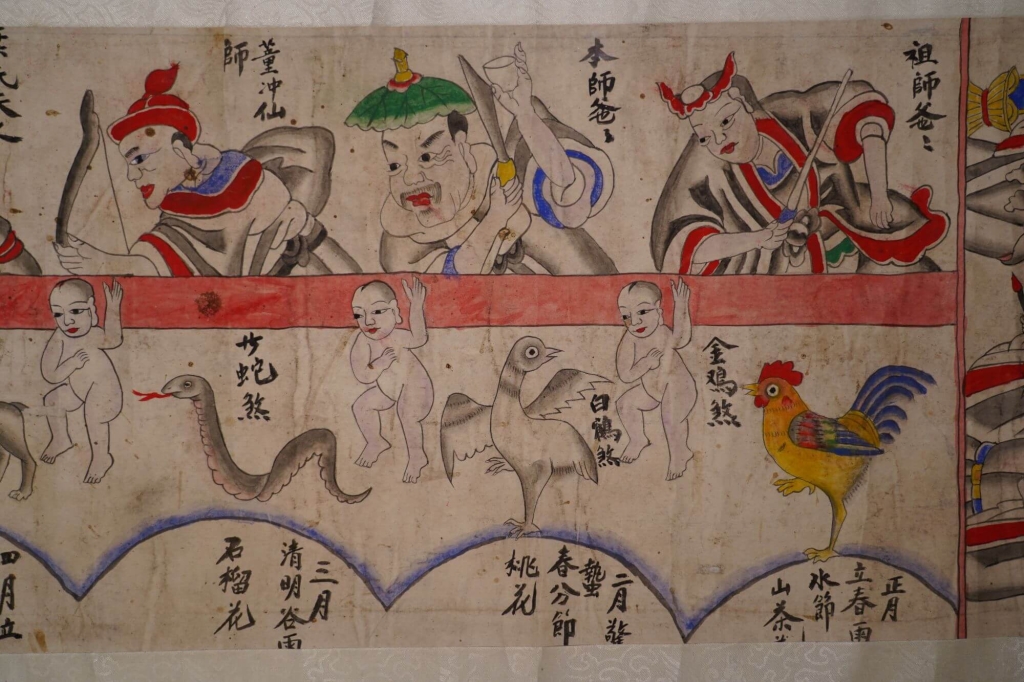 祖師爸〻
本師爸〻
董冲仙
師
金鳮煞
白鶴煞
蛇煞
正月
立春雨
水節
山茶
二月
蟄
春分節
桃花
三月
清明谷雨
石榴花
四月立